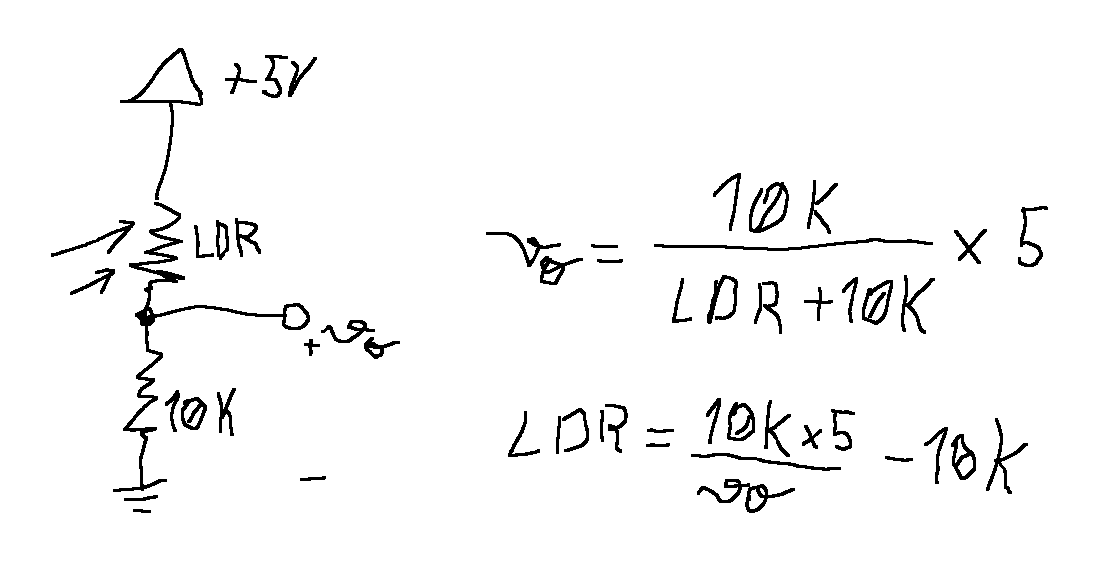 +5V
LDR
+ vo
10K
-
vo = 10K / (LDR + 10K) x 5
LDR = 10K x 5 / vo - 10K